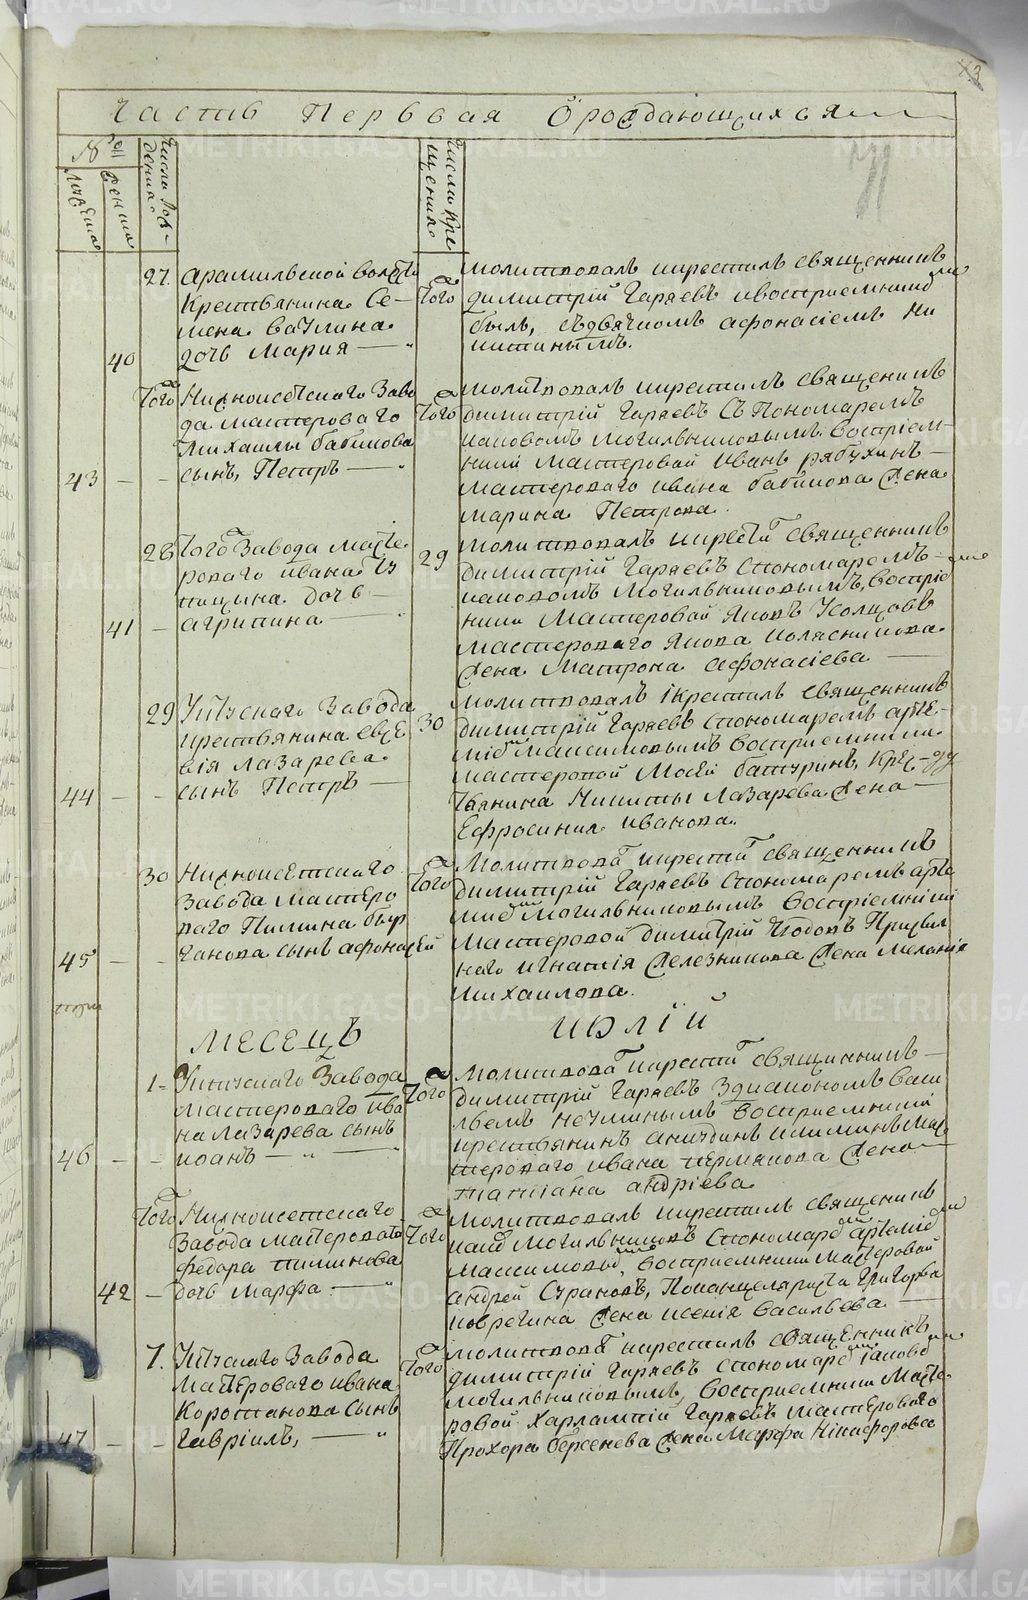 Часть Первая Ѻ рождающихся
№
мужеска
женска
числа рождения
числа крещения
43
27. Арамильской волости
крестьянина Се-
мена Ваулина
40 дочь Мария
Того
молитвовалъ икрестилъ священникъ
димитрій Гаряевъ ивосприемникомъ
былъ, съдьячкомъ афонасіемъ Ни
китинымъ.
Того Нижноисетскаго Заво
да мастероваго
Михаилы бабинова
43 сынъ, Петръ
Того
молитвовалъ икрестилъ священникъ
димитрій Гаряевъ Съ Пономаремъ
иаковомъ могильниковымъ. Воспріем-
ники мастеровой Иванъ рябухинъ
мастероваго ивана бабинова жена
марина Петрова.
28 Того Завода масте
роваго ивана Пт
ицына дочь
41 агрипина
29
молитвовалъ икрести священникъ
димитрій Гаряевъ Спономаремъ
иаковомъ могильниковымъ, воспріе
ники мастеровой Яковъ Усолцовъ
мастероваго Якова колясникова
жена матрона афонасіева
29 Уктускаго Завода
крестьянина евсе
вія лазарева
44 сынъ Петръ
30
молитвовалъ ікрестилъ священникъ
димитрій Гаряевъ Спономаремъ арте-
міемъ максимовымъ Восприемники
мастеровой Мосей батуринъ, крес-
тьянина Никиты лазарева жена
Ефросиния иванова.
30 Нижноисетскаго
Завода мастеро
ваго Пимина быр
45 ганова сынъ афонасей
Того
молитвова икрести священникъ
димитрій Гаряевъ Спономаремъ арте
міемъ могильниковымъ воспріемники
мастеровой димитрій
наго игнатія железникова жена меланія
михаилова.
МЕСЕЦЪ ИЮЛІЙ
1. Уктускаго Завода
мастероваго ива
на лазарева сынъ
46 иоанъ
Того
молитвова икрести священникъ
димитрій Гаряевъ Здиакономъ васи
льемъ неуминымъ восприемники
крестьянинъ аникдинъ климинъ мас
тероваго ивана пермякова жена
татиана андріева
Того Нижноисетскаго
Завода мастероваго
федора пиминова
42 дочь марфа
Того
молитвовалъ икрестилъ священикъ
иаковъ могильниковъ Спономаремъ артеміемъ
максимовымъ, восприемники мастеровой
андрей Сурановъ, Поканцеляриста Григорья
коврегина жена ксенія васильева
7. Уктускаго Завода
мастероваго ивана
Коротанова сынъ
47 Гавріилъ,
Того
молитвова икрестилъ священникъ
димитрій Гаряевъ Спономаремъ іаковомъ
могильниковымъ, восприемники масте-
ровой Харлампій Гаряевъ мастероваго
Прохора берсенева жена Марфа Никифорова
METRIKI.GASO-URAL.RU